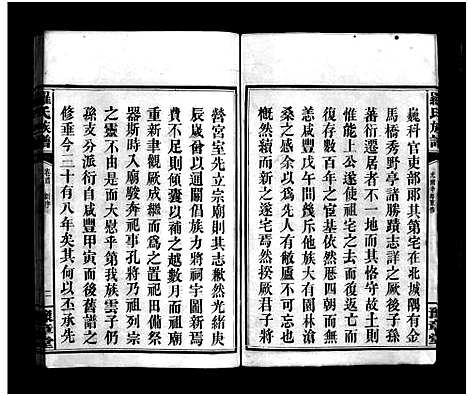 羅氏族譜
巍科官吏部郎其第宅在北城隅有金
馬橋秀野亭諸勝蹟志詳之厥後子孫
蕃衍遷居不一地而其恪守故土則
惟能上公遂使祖宅之去而復返宅亡而
復存數百年之基依然歷四朝而無
恙咸豐庚申十幾兵斥他族大有園林滄
桑之感余以為先人之敝廬不可忘
慨然繼而新之遂宅焉然揆厥君子將
營宮室先立宗廟則其志歉然光緒庚
辰歲曾以通關倡族力將祠宇圖新引
費不足則傾囊以補之越數月而祖廟
重新聿觀厥成繼而為之置祀田備祭
器四時入廟駿奔祀事孔將乃祖列宗
之靈不由而大慰乎第我族雲礽仍
孫支分派衍自咸豐甲寅而後舊譜之
修垂今三十有八年矣其何以丕承先
羅氏族譜
卷首
二
豫章堂